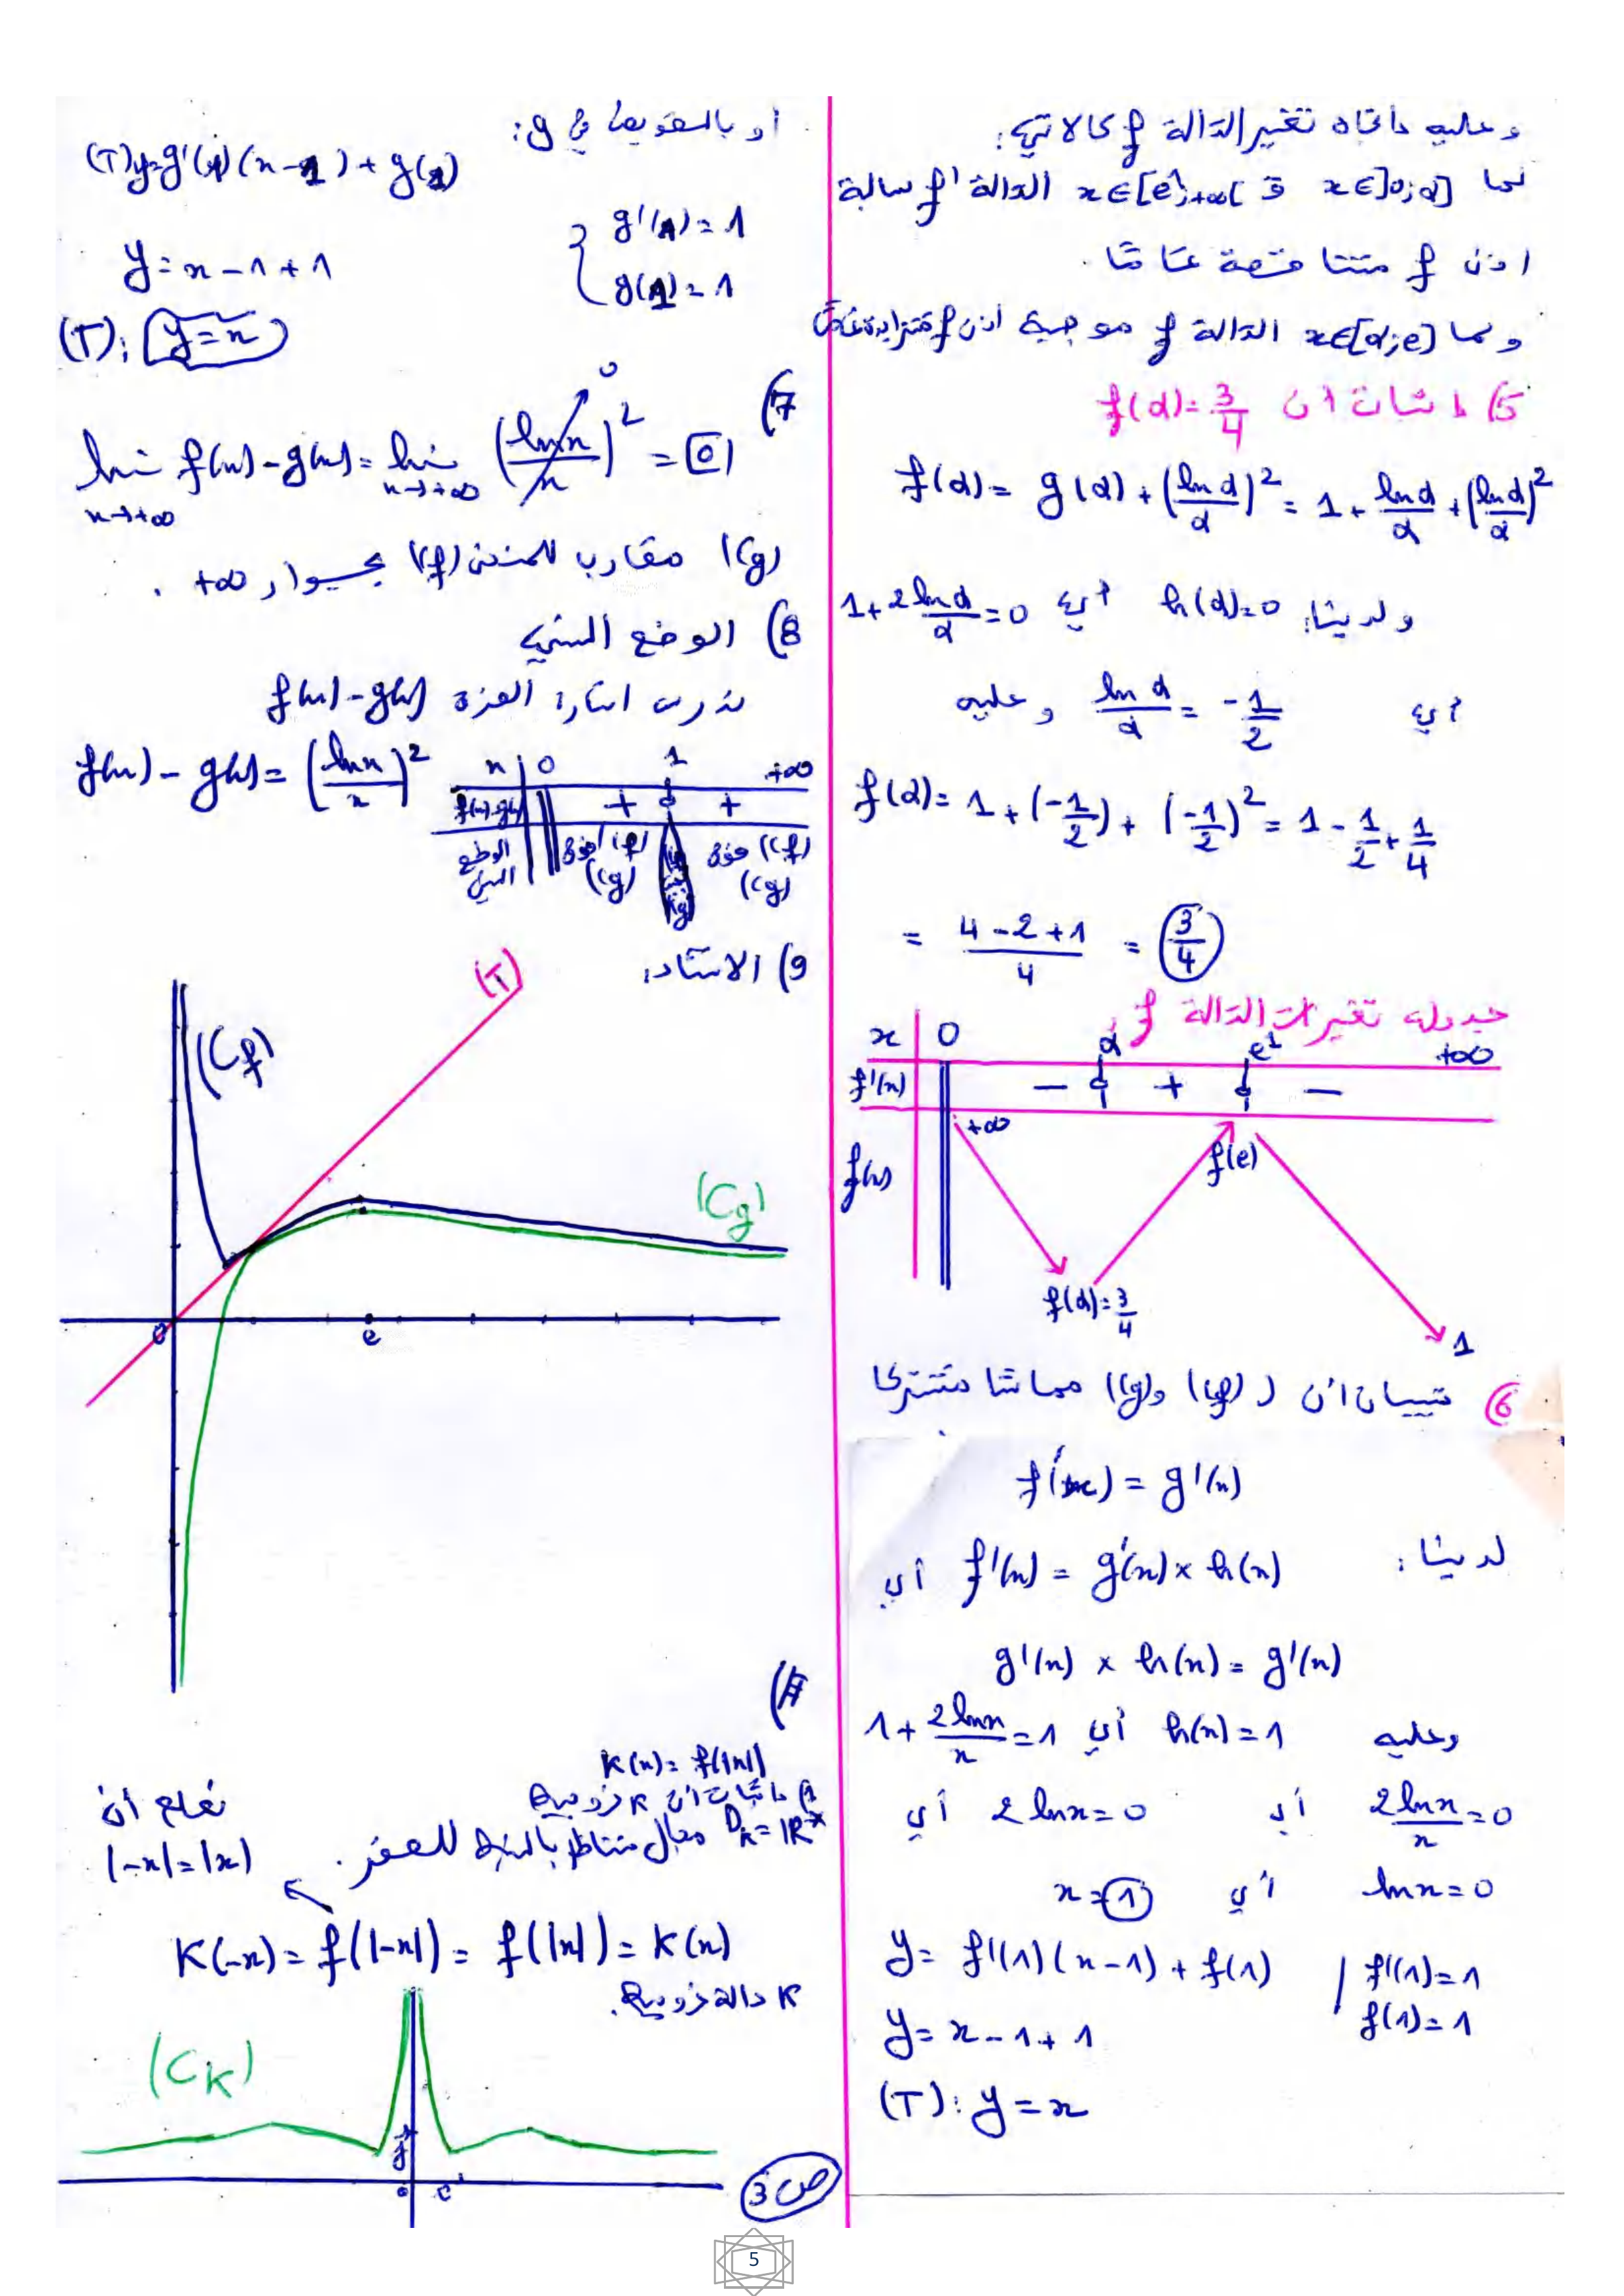 وعليه اتجاه تغير الدالة f كالآتي:
لما x∈]0;α] و x∈[e¹;+∞[ الدالة f' سالبة
اذن f متناقصة تماما.
و لما x∈[α;e] الدالة f موجبة اذن f متزايدة تماما
5) اثبات ان f(α)=3/4
f(α) = g(α) + (lnα/α)² = 1 + lnα/α + (lnα/α)²
ولدينا: h(α)=0 أي 1+2lnα/α=0
أي lnα/α = -1/2 وعليه
f(α) = 1 + (-1/2) + (-1/2)² = 1 - 1/2 + 1/4
= (4-2+1)/4 = 3/4
جدول تغيرات الدالة f
x 0 α e¹ +∞
f'(x) - 0 + 0 -
f(x) +∞ f(α)=3/4 f(e) 1
6) تبيان أن (Cf) و (Cg) مماسا مشتركا
f'(x) = g'(x)
لدينا: f'(x) = g'(x) × h(x) أي
g'(x) × h(x) = g'(x)
وعليه h(x) = 1 أي 1 + 2lnx/x = 1
2lnx/x = 0 أي 2lnx = 0 أي
lnx = 0 أي x = 1
y = f'(1)(x-1) + f(1) / f'(1) = 1
f(1) = 1
y = x - 1 + 1
(T): y = x
أو بالتعويض في g:
(T) y = g'(1)(x-1) + g(1)
{ g'(1) = 1
g(1) = 1
y = x - 1 + 1
(T): y = x
7)
lim x→+∞ f(x) - g(x) = lim x→+∞ (lnx/x)² = 0
0
(Cg) مقارب للمنحنى (Cf) بجوار +∞ .
8) الوضع النسبي
ندرس اشارة الفرق f(x) - g(x)
f(x) - g(x) = (lnx/x)²
x 0 1 +∞
f(x)-g(x) + 0 +
الوضع النسبي (Cf) فوق (Cg) (Cf) فوق (Cg)
9) الانشاء:
(T)
(Cf)
(Cg)
0 e
II)
K(x) = f(|x|)
1) اثبات ان K زوجية
DK = ℝ* مجال متناظر بالنسبة للصفر .
نعلم أن
|-x| = |x|
K(-x) = f(|-x|) = f(|x|) = K(x)
K دالة زوجية.
(CK)
0
ص 3
5